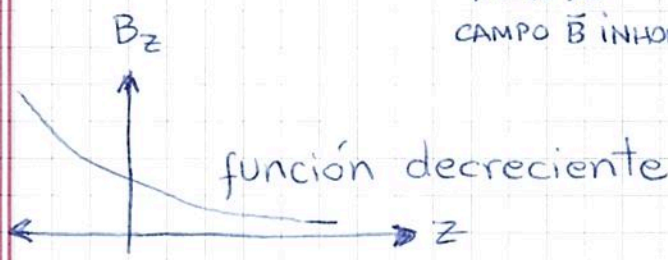 B_z
CAMPO B⃗ INHO
función decreciente
z